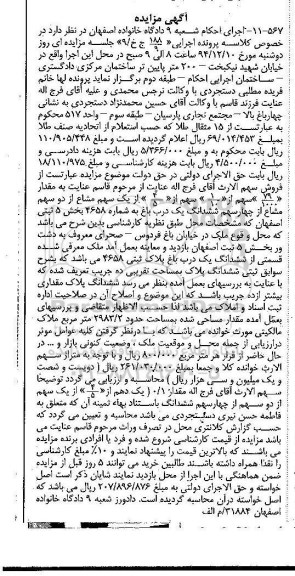 آگهی مزایده
۱۱-۵۶۷-اجرای احکام شعبه ۹ دادگاه خانواده اصفهان در نظر دارد در
خصوص کلاسه پرونده اجرایی ج خ/۹ جلسه مزایده ای روز
دوشنبه مورخ ۹۴/۱۲/۱۰ ساعت ۸ الی ۹ صبح در محل این اجرا واقع در
خیابان شهید نیکبخت - ۲۰۰ متر پایین تر ساختمان مرکزی دادگستری
- ساختمان اجرایی احکام - طبقه دوم برگزار نماید پرونده لها خانم
فریده مطلبی دستجردی با وکالت نرجس محمدی و علیه آقای فرج اله
عنایت فرزند قاسم با وکالت آقای حسین محمدنژاد دستجردی به نشانی
چهارباغ بالا - مجتمع تجاری پارسیان - طبقه سوم - واحد ۵۱۷ محکوم
به عبارتست از ۱۵ مثقال طلا که حسب استعلام از اتحادیه صنف طلا
بمبلغ ریال اعلام گردیده است و مبلغ ۱۱۰/۹۰۵/۴۴۸
ریال بابت محکوم به و مبلغ ۵/۳۶۶/۰۰۰ ریال بابت هزینه دادرسی و
مبلغ ۴/۵۰۰/۰۰۰ ریال بابت هزینه کارشناسی و مبلغ ۱۸/۱۱۰/۹۷۵
ریال بابت حق الاجرای دولتی در حق دولت موضوع مزایده عبارتست از
فروش سهم الارث آقای فرج اله عنایت از مرحوم قاسم عنایت به مقدار
سهم از سهم از از یک سهم مشاع از دو سهم
مشاع از چهارسهم ششدانگ یک درب باغ به شماره ۴۶۵۸ بخش ۵ ثبتی
اصفهان که مشخصات محل طبق نظریه کارشناسی بدین شرح می باشد
که محل وقوع ملک در خیابان باغ فردوس - صحرای معروف به دشت
ور بخش ۵ ثبت اصفهان بازدید و معاینه بعمل آمد ملک معرفی شده
قسمتی از ششدانگ یک درب باغ پلاک ثبتی ۴۶۵۸ می باشد که بشرح
سوابق ثبتی ششدانگ پلاک بمساحت تقریبی ده جریب تعریف شده که
با عنایت به بررسیهای بعمل آمده بنظر می رسد ششدانگ پلاک مقداری
بیشتر ازده جریب باشد که این موضوع و اصلاح آن در صلاحیت اداره
ثبت اسناد و املاک می باشد لذا حسب الاظهار متقاضی و بررسیهای
بعمل آمده مقدار مساحی شده بمساحت حدود ۲۹۸۲/۲ متر مربع ملاک
مالکیتی مورث خوانده می باشد که با درنظر گرفتن کلیه عوامل موثر
درارزیابی از جمله محل و موقعیت ملک، وضعیت کنونی بازار و ... در
حال حاضر از قرار هر متر مربع ۸۰۰/۰۰۰ ریال و با توجه به متراژ سهم
الارث خوانده کلا و جمعا بمبلغ ۲۶۱/۰۳۰/۰۰۰ ریال ( دویست و شصت
و یک میلیون و سی هزار ریال ) محاسبه و ارزیابی می گردد توضیحا
سهم الارث آقای فرج اله مقدار ۱/۱۰ ( یک دهم از از یک سهم
از دو سهم از چهارسهم ششدانگ باستثناء بهاء ثمینه آن که متعلق به
فاطمه حسن نیری دستجردی می باشد محاسبه و تعیین می گردد که
حسب گزارش کلانتری محل در تصرف وراث مرحوم قاسم عنایت می
باشد مزایده از قیمت کارشناسی شروع شده و فرد یا افرادی برنده مزایده
می باشند که بالاترین قیمت را پیشنهاد نمایند و ۱۰٪ مبلغ کارشناسی
را نقدا همراه داشته باشند طالبین خرید می توانند ۵ روز قبل از مزایده
ضمن هماهنگی با این اجرا از محل بازدید نمایند شایان ذکر است اصل
خواسته و حق الاجرای دولتی به مبلغ ۲۰۷/۸۹۶/۸۷۶ ریال می باشد که
اصل خواسته درآن محاسبه گردیده است. دادورز شعبه ۹ دادگاه خانواده
اصفهان ۳۱۸۸۴/م الف